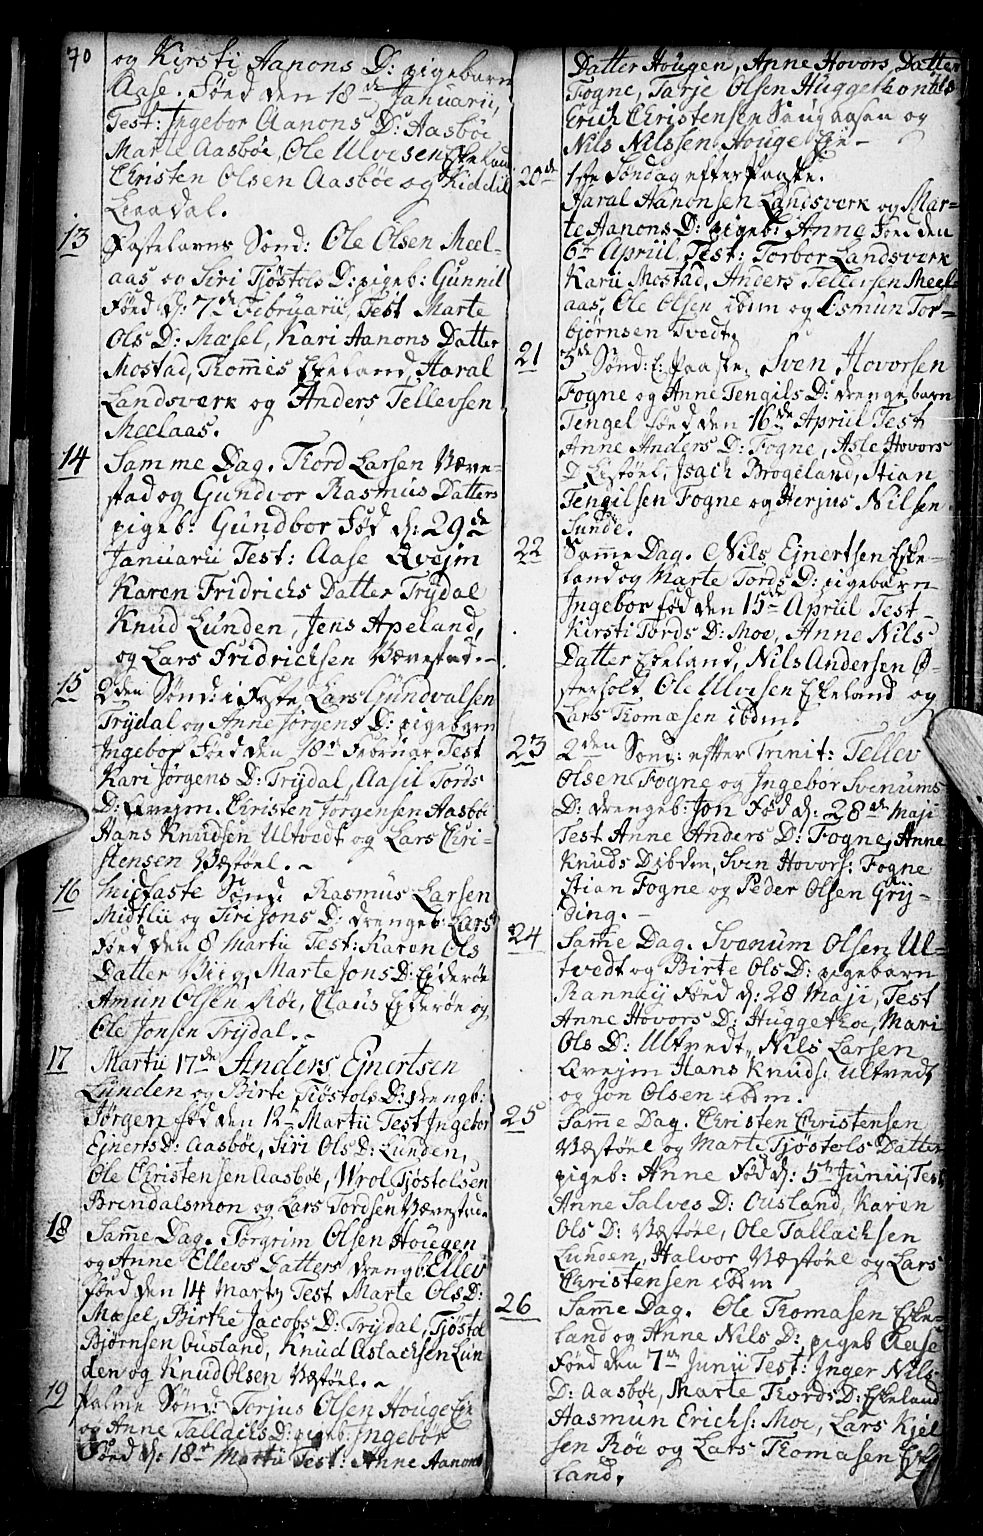 70
og Kirsti Aanons D: pigebarn
Aase. Föd den 18de Januarii,
Test: Ingebor Aanons D: Aasböe
Marte Aasböe, Ole Ulvesen Eskeland
Christen Olsen Aasböe og Kiddil
Liaadal.
13 Fastelavns Sönd: Ole Olsen Meel-
aas og Siri Tjöstols D: pigeb: Gunnil
Föed d: 7de Februarii, Test Marte
Ols D: Mæsel, Kari Aanons Datter
Mostad, Tommes Eskeland, Haral
Landsverk og Anders Tellevsen
Meelaas.
14 Samme Dag. Tord Larsen Væve-
stad og Gundvor Rasmus Datters
pigeb: Gundbor Föd d: 29de
Januarii Test: Aase Qvejm
Karen Fridrichs Datter Trydal
Knud Lunden, Jens Apeland,
og Lars Fridrichsen Vævestad.
15 2den Sönd: i Faste Lars Gundvalsen
Trydal og Anne Jörgens D: pigebarn
Ingebor Föed den 18de Februar Test
Kari Jörgens D: Trydal, Aasil Tords
D: Qvejm. Christen Jörgensen Aasböe
Hans Knudsen Ultvedt og Lars Chri-
stensen Væstöel.
16 Midfaste Sönd: Rasmus Larsen
Midtlii og Siri Jons D: drengeb: Lars
Föed den 8 Martii Test: Karen Ols
Datter Viig, Marte Jons D: Ejderöe
Amun Olsen Röe, Claus Ejderöe og
Ole Jonsen Trydal.
17 Martii 17de Anders Ejnertsen
Lunden og Birte Tjöstols D: drengb:
Jörgen föd den 12te Martii Test Ingebor
Ejnerts D: Aasböe, Siri Ols D: Lunden,
Ole Christensen Aasböe, Wrol Tjöstolsen
Brendalsmon og Lars Tordsen Vævestad.
18 Same Dag. Torgrim Olsen Hougen
og Anne Ellevs Datters drengb: Ellev
föed den 14 Marty Test Marte Ols D:
Mæsel, Birthe Jacobs D: Trydal, Tjöstol
Björnsen Ousland, Knud Aslachsen Lun-
den og Knud Olsen Væstöel.
19 Palme Sönd: Torjus Olsen Houge Eje
og Anne Tallachs D: pigb: Ingebor
Föed d: 18de Martii Test: Anne Aanons
Datter Hougen, Anne Hovors Datter
Fogne, Tarje Olsen Huggetho
Erich Christensen Saugaasen og
Nils Nilssen Houge Eje
20de 1ste Söndag efter Paaske.
Haral Aanonsen Landsverk og Mar-
te Aanons D: pigeb: Anne Föed den
6te Apriil, Test: Torbor Landsverk
Kari Mostad, Anders Tellefsen Meel-
aas, Ole Olsen ibdm og Osmun Tor-
björnsen Tvedt.
21 3de Sönd: E: Paaske. Sven Hovorsen
Fogne og Anne Tengils D: drengebarn
Tengel föed den 16de Apriil Test
Anne Anders D: Fogne, Asle Hovors
D Lestöel, Isach Brogeland, Stian
Tengilsen Fogne og Herjus Nilsen
Sunde.
22 Same Dag. Nils Ejnertsen Eske-
land og Marte Tords D: pigebarn
Ingebor föd den 15de Apriil Test
Kirsti Tords D: Moe, Anne Nils
Datter Eskeland, Nils Andersen Ö-
sterholt, Ole Ulvesen Eskeland og
Lars Thomæsen ibdm.
23 2den Sönd: efter Trinit: Tellev
Olsen Fogne og Ingebor Svenums
D: drengeb: Jon Föd d: 28de Maji
Test Anne Anders D: Fogne, Anne
Knuds D ibdm, Sven Hovors: Fogne
Stian Fogne og Peder Olsen Gry-
ding.
24 Same Dag. Svenum Olsen Ul-
tvedt og Birte Ols D: pigebarn
Ranneij Föed d: 28 Maji, Test
Anne Hovors D: Huggethoe, Mari
Ols D: Ultvedt, Nils Larsen
Qvejm Hans Knuds: Ultvedt
og Jon Olsen ibdm.
25 Same Dag. Christen Christensen
Væstöel og Marte Tjöstols Datter
pigeb: Anne Föd d: 5te Junii, Test
Anne Salves D: Ousland, Karen
Ols D: Væstöel, Ole Tallachsen
Lunden, Halvor Væstöel og Lars
Christensen ibdm
26 Same Dag. Ole Thomasen Eske-
land og Anne Nils D: pigeb Aase
Föed den 7de Junii Test: Inger Nils
D: Aasböe, Marte Thords D: Eskeland
Aasmun Erichs: Moe, Lars Kjel
sen Röe og Lars Thomasen Eske
land.